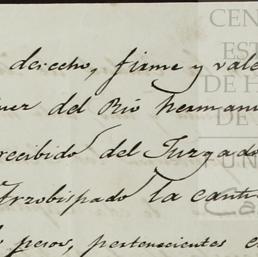 derecho, firme y vale
del Rio herman
recibido del Juzgado
Arzobispado la cant
pesos, pertenecientes e
CEN
EST
DE H
DE
FUN
Ca